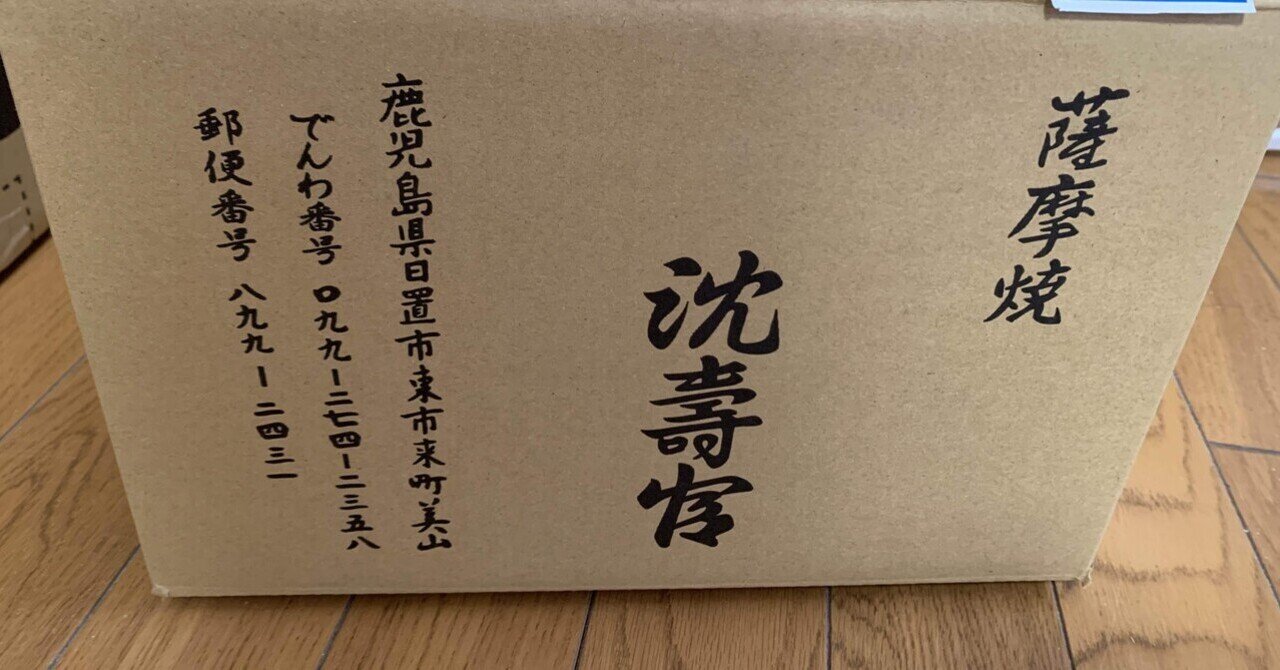 薩摩焼
沈壽官
鹿児島県日置市東市来町美山
でんわ番号 〇九九ー二七四ー二三五八
郵便番号 八九九ー二四三一